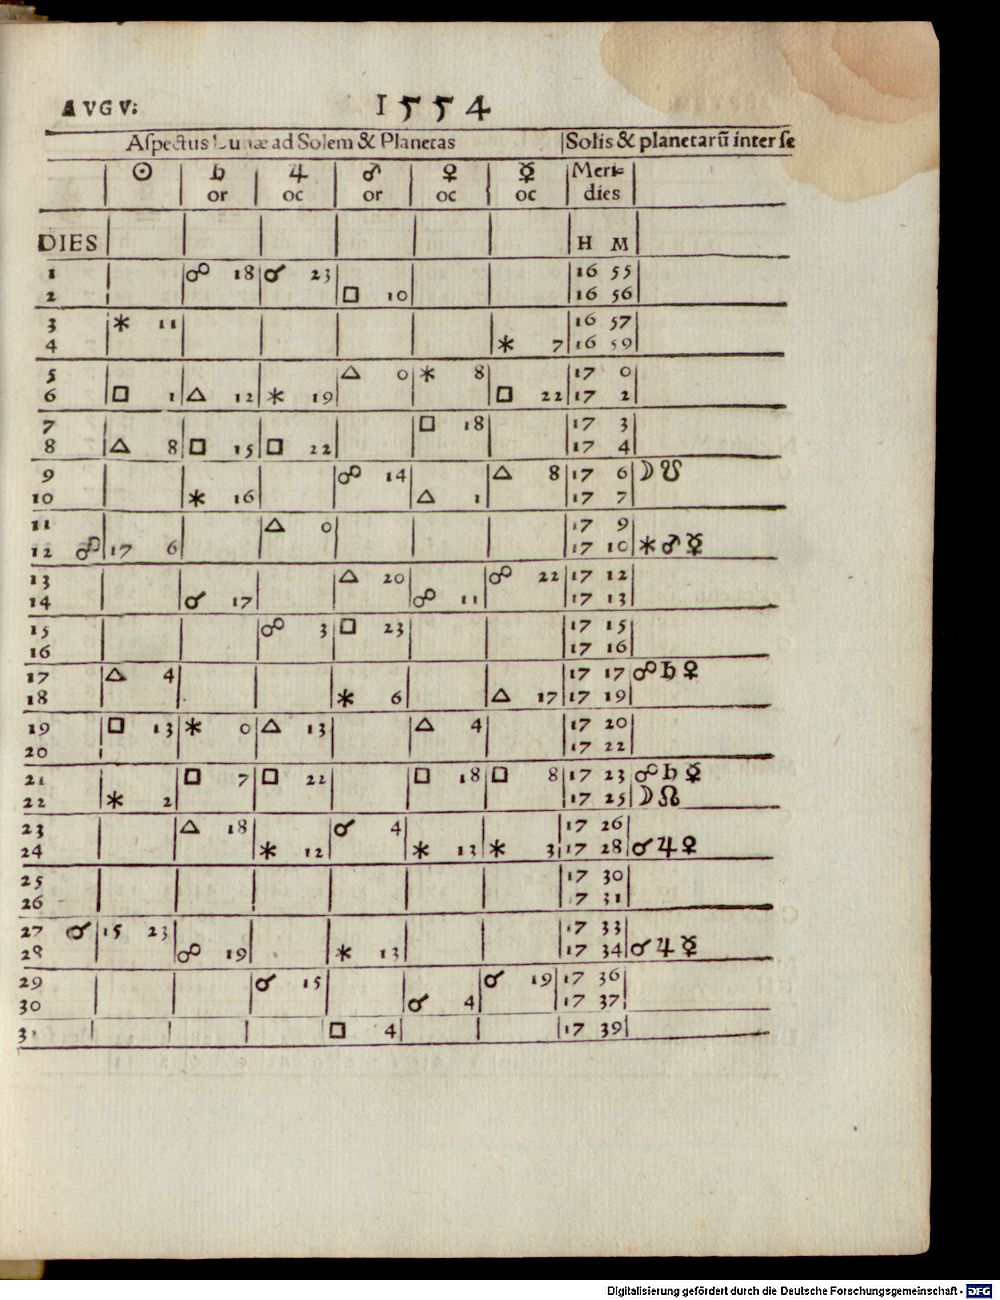 AVGV: 1554
Aſpectus Lunæ ad Solem & Planetas Solis & planetarū inter ſe
☉ ♄ ♃ ♂ ♀ ☿ Meri-
or oc or oc oc dies
DIES H M
1 ☍ 18 ☌ 23 16 55
2 □ 10 16 56
3 ⚹ 11 16 57
4 ⚹ 7 16 59
5 △ 0 ⚹ 8 17 0
6 □ 1 △ 12 ⚹ 19 □ 22 17 2
7 □ 18 17 3
8 △ 8 □ 15 □ 22 17 4
9 ☍ 14 △ 8 17 6 ☽ ☋
10 ⚹ 16 △ 1 17 7
11 △ 0 17 9
12 ☍ 17 6 17 10 ⚹ ♂ ☿
13 △ 20 ☍ 22 17 12
14 ☌ 17 ☍ 11 17 13
15 ☍ 3 □ 23 17 15
16 17 16
17 △ 4 17 17 ☍ ♄ ♀
18 ⚹ 6 △ 17 17 19
19 □ 13 ⚹ 0 △ 13 △ 4 17 20
20 17 22
21 □ 7 □ 22 □ 18 □ 8 17 23 ☍ ♄ ☿
22 ⚹ 2 17 25 ☽ ☊
23 △ 18 ☌ 4 17 26
24 ⚹ 12 ⚹ 13 ⚹ 3 17 28 ☌ ♃ ♀
25 17 30
26 17 31
27 ☌ 15 23 17 33
28 ☍ 19 ⚹ 13 17 34 ☌ ♃ ☿
29 ☌ 15 ☌ 19 17 36
30 ☌ 4 17 37
31 □ 4 17 39
Digitalisierung gefördert durch die Deutsche Forschungsgemeinschaft - DFG